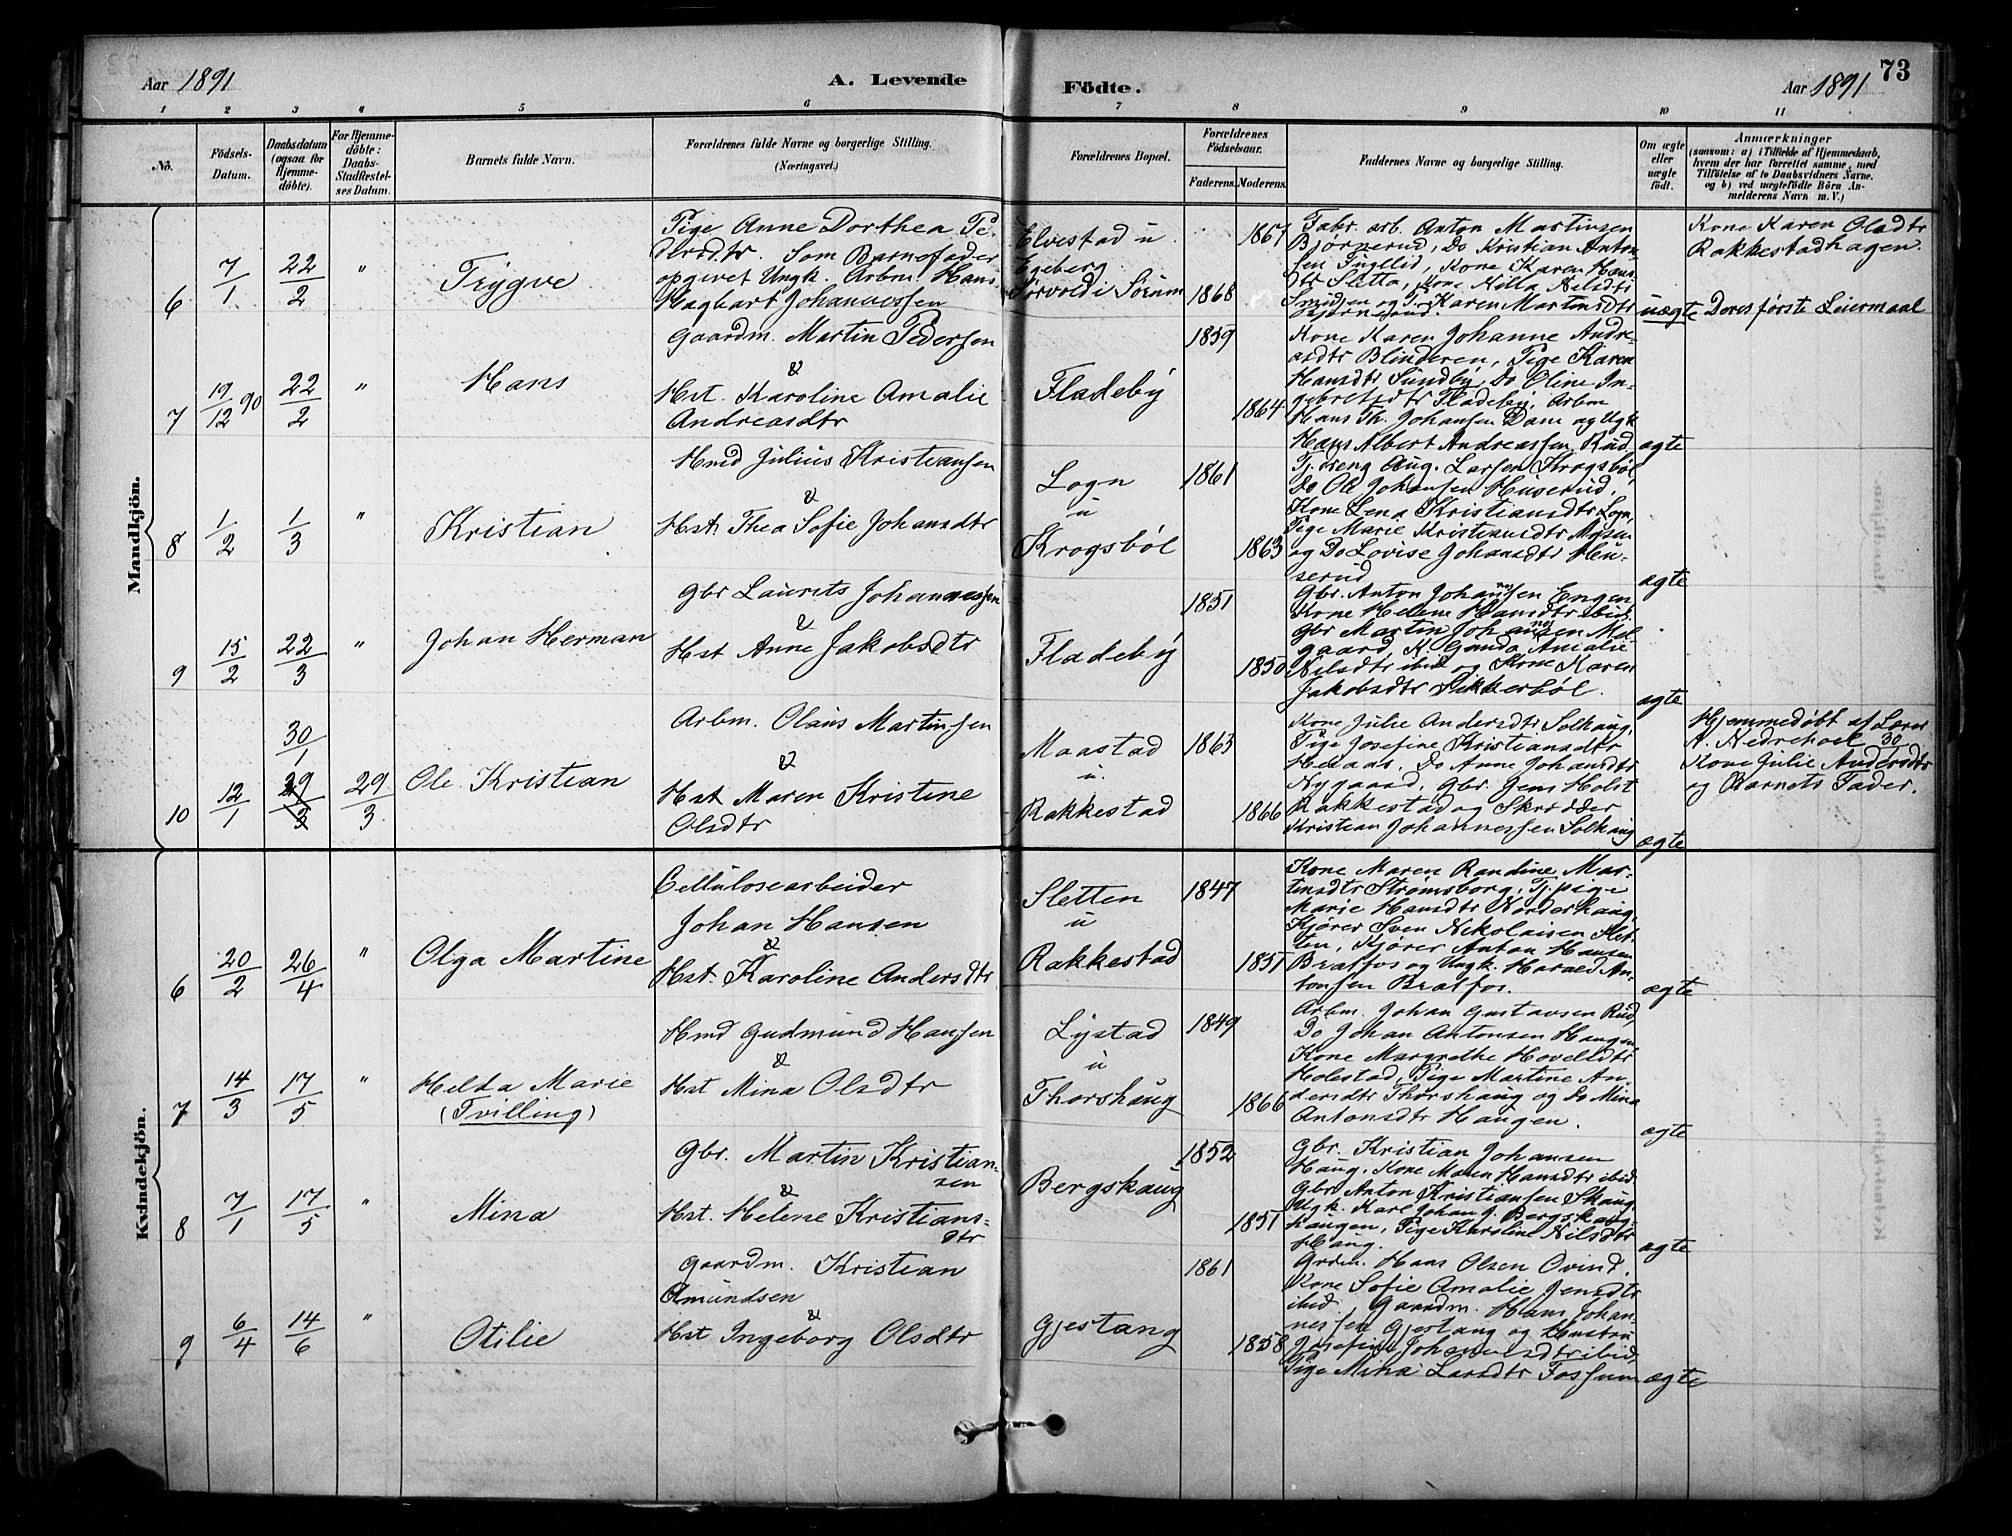 Aar 1891
A. Levende
Födte.
Aar 1891
73
1 2 3 4 5 6 7 8 9 10 11
No.
Födsels-Datum.
Daabsdatum (ogsaa for Hjemme-döbte).
For Hjemme-döbte: Daabs-Stadfæstel-ses Datum.
Barnets fulde Navn.
Forældrenes fulde Navne og borgerlige Stilling. (Næringsvei.)
Forældrenes Bopæl.
Forældrenes Födselsaar.
Faderens. Moderens.
Faddernes Navne og borgerlige Stilling.
Om ægte eller uægte födt.
Anmærkninger
(saasom: a) i Tilfælde af Hjemmedaab, hvem der har forrettet samme, med Tilföielse af to Daabsvidners Navne. og b) ved uægtefödte Börn An-melderens Navn m. V.)
Mandkjön.
6
7/1
22/2
"
Trygve
Pige Anne Dorthea Pe-
dersdtr. Som Barnefader
opgivet Ungk. Arbm Hans
Hagbart Johannessen
Elvestad u
Egeberg
Sørvold i Sørum
1868
1867
Fabr. arb. Anton Martinsen
Bjørnerud, Do Kristian Anton-
sen Fuglelid, Kone Karen Hans-
dtr Sletta, Kone Nilsdtr
og Karen Martinsdtr
uægte
Kone Karen Olsdtr
Rakkestadhagen.
Deres første Leiermaal
7
19/12 90
22/2
"
Hans
Gaardm. Martin Pedersen
&
Hst. Karoline Amalie
Andreasdtr
Fladeby
1859
1864
Kone Karen Johanne Andre-
asdtr Blinderen, Pige Karen
Hansdtr Sundby, Do Oline In-
gebretsdtr Fladeby, Arbm
Hans Th. Johansen Dam og Ugk
Hans Albert Andreassen Rud
ægte
8
1/2
1/3
"
Kristian
Hmd Julius Kristiansen
&
Hst. Thea Sofie Johansdtr
Logn
u
Krogsböl
1861
1863
Tj. dreng Aug. Larsen Krogsböl,
Do Ole Johansen Huserud,
Kone Lena Kristiansdtr Logn,
Pige Marie Kristiansdtr Mosen
og Do Lovise Johansdtr Hu-
serud
ægte
9
15/2
22/3
"
Johan Herman
Gbr Laurits Johannessen
&
Hst Anne Jakobsdtr
Fladeby
1851
1850
Gbr. Anton Johannesen Engen
Kone Helene Hansdtr ibid.
Gbr Martin Johannesen Mel-
gaard, K. Gunda Amalie
Nilsdtr ibid og Kone Karen
Jakobsdtr Sikkerböl.
ægte
10
12/1
30/1
29/3
29/3
Ole Kristian
Arbm. Olaus Martinsen
&
Hst Maren Kristine
Olsdtr
Maastad
u.
Rakkestad
1863
1866
Kone Julie Andersdtr Solhaug,
Pige Josefine Kristiansdtr
Do Anne Johansdtr
Nygaard, Gbr. Jens Holst
Rakkestad og Skrædder
Kristian Johannessen Solhaug
ægte
Hjemmedøbt af Lærer
A. Nedrehoel
Kone Julie Andersdtr
og Barnets Fader.
Kvindekjön.
6
20/2
26/4
"
Olga Martine
Cellulosearbeider
Johan Hansen
&
Hst. Karoline Andersdtr
Sletten
u
Rakkestad
1847
1851
Kone Maren Randine Mar-
tinsdtr Strømsborg, Tj. pige
Marie Hansdtr Norderhaug
Kjører Sven Nikolaisen Slet-
ten, Kjører Anton Hansen
Bratfos og Ungk. Harald An-
tonsen Bratfos.
ægte
7
14/3
17/5
"
Helda Marie
(Tvilling)
Hmd Gudmund Hansen
&
Hst Mina Olsdtr
Lystad
u
Thorshaug
1849
1866
Arbm. Johan Gustavsen Rud,
Do Johan Antonsen Haugen
Kone Margrethe Hovelsdtr
Holestad, Pige Martine An-
dersdtr Thorshaug og Do Mina
Antonsdtr Haugen.
ægte
8
7/1
17/5
"
Mina
Gbr. Martin Kristian-
sen
&
Hst. Helene Kristians-
dtr
Bergskaug
1852
1851
Gbr. Kristian Johansen
Haug, Kone Maren Hansdtr ibid
Gbr. Anton Kristiansen Skaug
Ugk. Karl Johan J. Bergskaug-
haugen, Pige Karoline Nilsdtr
Haug.
ægte
9
6/4
14/6
"
Otilie
Gaardm. Kristian
Amundsen
&
Hst Ingeborg Olsdtr
Gjestang
1861
1858
Grdm. Hans Olsen Ovind,
Kone Sofie Amalie Jensdtr
ibid, Gaardm. Hans Johan-
nessen Gjestang og Hustru
Josefine Johannesdtr ibid,
Pige Mina Larsdtr Fossum
ægte